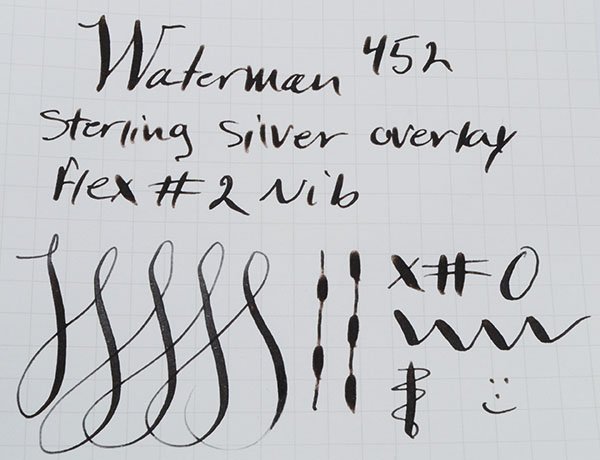 Waterman 452
Sterling Silver overlay
Flex # 2 Nib
x # 0